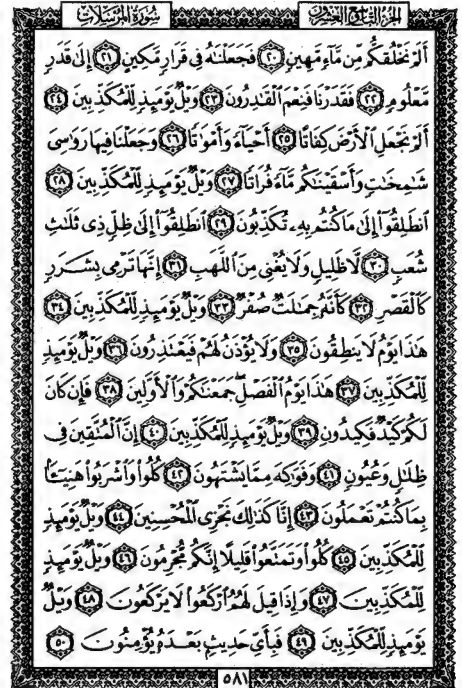 سورة المرسلات
الجزء التاسع والعشرون
أَلَمْ نَخْلُقكُّم مِّن مَّآءٍ مَّهِينٍ ٢٠ فَجَعَلْنَٰهُ فِى قَرَارٍ مَّكِينٍ ٢١ إِلَىٰ قَدَرٍ
مَّعْلُومٍ ٢٢ فَقَدَرْنَا فَنِعْمَ ٱلْقَٰدِرُونَ ٢٣ وَيْلٌ يَوْمَئِذٍ لِّلْمُكَذِّبِينَ ٢٤
أَلَمْ نَجْعَلِ ٱلْأَرْضَ كِفَاتًا ٢٥ أَحْيَآءً وَأَمْوَٰتًا ٢٦ وَجَعَلْنَا فِيهَا رَوَٰسِىَ
شَٰمِخَٰتٍ وَأَسْقَيْنَٰكُم مَّآءً فُرَاتًا ٢٧ وَيْلٌ يَوْمَئِذٍ لِّلْمُكَذِّبِينَ ٢٨
ٱنطَلِقُوٓا۟ إِلَىٰ مَا كُنتُم بِهِۦ تُكَذِّبُونَ ٢٩ ٱنطَلِقُوٓا۟ إِلَىٰ ظِلٍّ ذِى ثَلَٰثِ
شُعَبٍ ٣٠ لَّا ظَلِيلٍ وَلَا يُغْنِى مِنَ ٱللَّهَبِ ٣١ إِنَّهَا تَرْمِى بِشَرَرٍ
كَٱلْقَصْرِ ٣٢ كَأَنَّهُۥ جِمَٰلَتٌ صُفْرٌ ٣٣ وَيْلٌ يَوْمَئِذٍ لِّلْمُكَذِّبِينَ ٣٤
هَٰذَا يَوْمُ لَا يَنطِقُونَ ٣٥ وَلَا يُؤْذَنُ لَهُمْ فَيَعْتَذِرُونَ ٣٦ وَيْلٌ يَوْمَئِذٍ
لِّلْمُكَذِّبِينَ ٣٧ هَٰذَا يَوْمُ ٱلْفَصْلِ جَمَعْنَٰكُمْ وَٱلْأَوَّلِينَ ٣٨ فَإِن كَانَ
لَكُمْ كَيْدٌ فَكِيدُونِ ٣٩ وَيْلٌ يَوْمَئِذٍ لِّلْمُكَذِّبِينَ ٤٠ إِنَّ ٱلْمُتَّقِينَ فِى
ظِلَٰلٍ وَعُيُونٍ ٤١ وَفَوَٰكِهَ مِمَّا يَشْتَهُونَ ٤٢ كُلُوا۟ وَٱشْرَبُوا۟ هَنِيٓـًٔا
بِمَا كُنتُمْ تَعْمَلُونَ ٤٣ إِنَّا كَذَٰلِكَ نَجْزِى ٱلْمُحْسِنِينَ ٤٤ وَيْلٌ يَوْمَئِذٍ
لِّلْمُكَذِّبِينَ ٤٥ كُلُوا۟ وَتَمَتَّعُوا۟ قَلِيلًا إِنَّكُم مُّجْرِمُونَ ٤٦ وَيْلٌ يَوْمَئِذٍ
لِّلْمُكَذِّبِينَ ٤٧ وَإِذَا قِيلَ لَهُمُ ٱرْكَعُوا۟ لَا يَرْكَعُونَ ٤٨ وَيْلٌ
يَوْمَئِذٍ لِّلْمُكَذِّبِينَ ٤٩ فَبِأَىِّ حَدِيثٍۭ بَعْدَهُۥ يُؤْمِنُونَ ٥٠
٥٨١